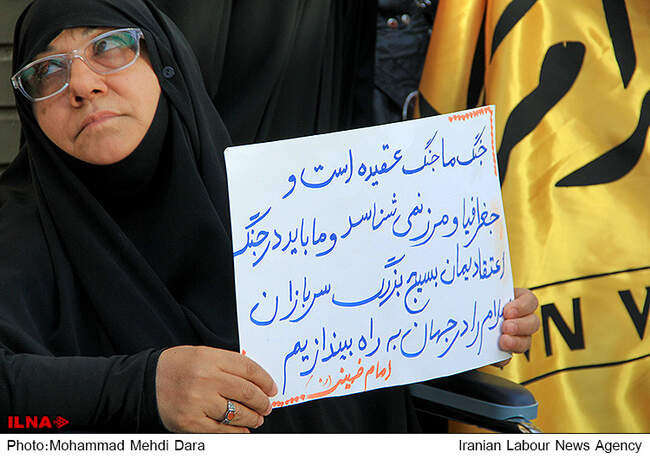 جنگ ما جنگ عقیده است و
جغرافیا و مرز نمی شناسد و ما باید در جنگ
اعتقادیمان بسیج بزرگ سربازان
اسلام را در جهان به راه بیندازیم
امام خمینی (ره)
ILNA
Photo:Mohammad Mehdi Dara
Iranian Labour News Agency